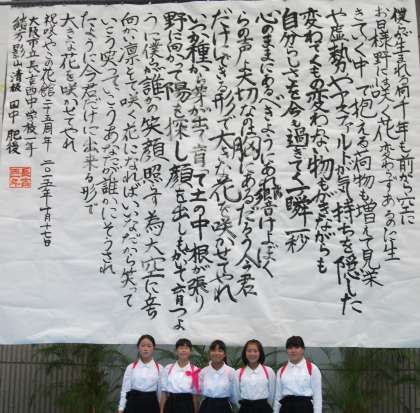 僕らが生まれる何千年も前から空に
お日様野には咲く花変わらずあるのに生
きてく中で抱える荷物も増えて見栄
や虚勢やマスクールドが気持ちを隠した
変わってくもの変わらない物もかきながらも
自分らしさを今も過ぎてく一瞬一秒
心のままにあるべきようにあり続けよぼく
らの声大切なのは胸にあるだろう今君
だけにできる形で大きな花を咲かせてやれ
いつか種から芽が出て育って土の中根が張り
野に向かって陽を探し顔を出しもがいて育つよ
うに僕らも誰かの笑顔照らす為大空に立ち
向かい凛として咲く花になればいいなだから笑って
いこう唄っていこうあなたが誰かにそうされ
たように今君だけに出来る形で
大きな花を咲かせてやれ
祝咲くやこの花館二十五周年 二〇一五年十月十七日
大阪市立長吉西中学校一年
緒方 影山 清板 田中 肥後